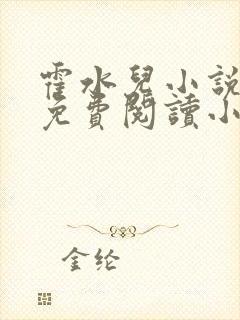 霍水兒小說
免費閱讀小
金纶